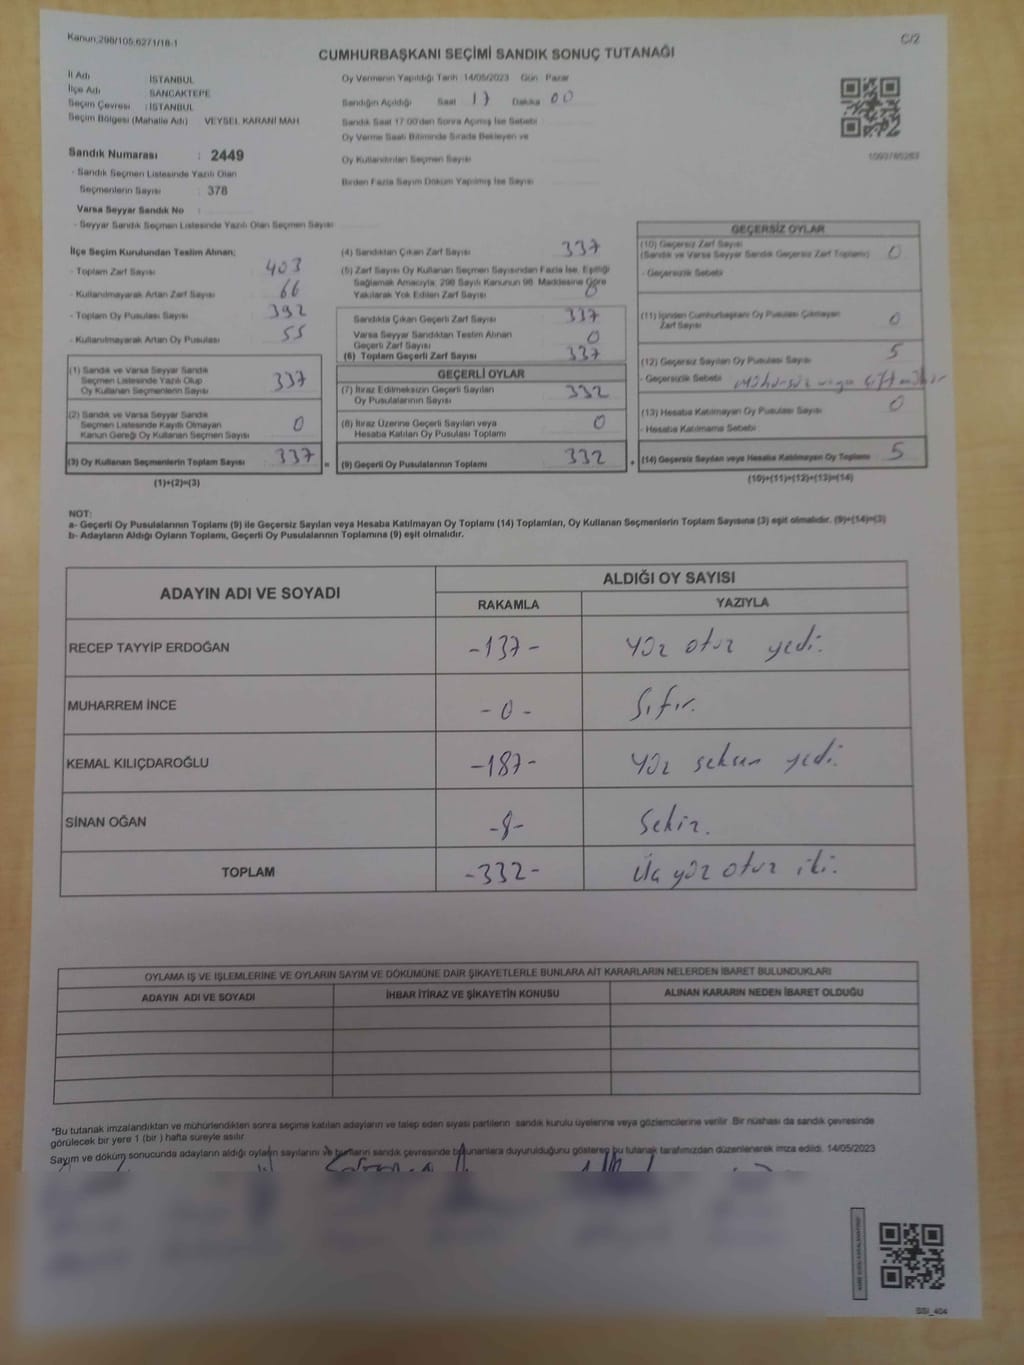 Kanun:298/105,6271/18-1
C/2
CUMHURBAŞKANI SEÇİMİ SANDIK SONUÇ TUTANAĞI
İl Adı İSTANBUL
İlçe Adı SANCAKTEPE
Seçim Çevresi : İSTANBUL
Seçim Bölgesi (Mahalle Adı) VEYSEL KARANİ MAH.
Sandık Numarası : 2449
- Sandık Seçmen Listesinde Yazılı Olan
Seçmenlerin Sayısı : 378
Varsa Seyyar Sandık No :
- Seyyar Sandık Seçmen Listesinde Yazılı Olan Seçmen Sayısı
Oy Vermenin Yapıldığı Tarih 14/05/2023 Gün Pazar
Sandığın Açıldığı Saat 17 Dakika 00
Sandık Saat 17:00'den Sonra Açılmış İse Sebebi
Oy Verme Saati Bitiminde Sırada Bekleyen ve
Oy Kullandırılan Seçmen Sayısı
Birden Fazla Sayım Döküm Yapılmış İse Sayısı
1093785263
İlçe Seçim Kurulundan Teslim Alınan;
- Toplam Zarf Sayısı 403
- Kullanılmayarak Artan Zarf Sayısı 66
- Toplam Oy Pusulası Sayısı 392
- Kullanılmayarak Artan Oy Pusulası 55
(1) Sandık ve Varsa Seyyar Sandık
Seçmen Listesinde Yazılı Olup
Oy Kullanan Seçmenlerin Sayısı 337
(2) Sandık ve Varsa Seyyar Sandık
Seçmen Listesinde Kayıtlı Olmayan
Kanun Gereği Oy Kullanan Seçmen Sayısı 0
(3) Oy Kullanan Seçmenlerin Toplam Sayısı 337 =
(1)+(2)=(3)
(4) Sandıktan Çıkan Zarf Sayısı 337
(5) Zarf Sayısı Oy Kullanan Seçmen Sayısından Fazla İse, Eşitliği
Sağlamak Amacıyla; 298 Sayılı Kanunun 98. Maddesine Göre
Yakılarak Yok Edilen Zarf Sayısı 0
Sandıkta Çıkan Geçerli Zarf Sayısı 337
Varsa Seyyar Sandıktan Teslim Alınan
Geçerli Zarf Sayısı 0
(6) Toplam Geçerli Zarf Sayısı 337
GEÇERLİ OYLAR
(7) İtiraz Edilmeksizin Geçerli Sayılan
Oy Pusulalarının Sayısı 332
(8) İtiraz Üzerine Geçerli Sayılan veya
Hesaba Katılan Oy Pusulası Toplamı 0
(9) Geçerli Oy Pusulalarının Toplamı 332 +
GEÇERSİZ OYLAR
(10) Geçersiz Zarf Sayısı
(Sandık ve Varsa Seyyar Sandık Geçersiz Zarf Toplamı) 0
- Geçersizlik Sebebi
(11) İçinden Cumhurbaşkanı Oy Pusulası Çıkmayan
Zarf Sayısı 0
(12) Geçersiz Sayılan Oy Pusulası Sayısı 5
- Geçersizlik Sebebi Mühürsüz veya çift mühür
(13) Hesaba Katılmayan Oy Pusulası Sayısı 0
- Hesaba Katılmama Sebebi
(14) Geçersiz Sayılan veya Hesaba Katılmayan Oy Toplamı 5
(10)+(11)+(12)+(13)=(14)
NOT:
a- Geçerli Oy Pusulalarının Toplamı (9) ile Geçersiz Sayılan veya Hesaba Katılmayan Oy Toplamı (14) Toplamları, Oy Kullanan Seçmenlerin Toplam Sayısına (3) eşit olmalıdır. (9)+(14)=(3)
b- Adayların Aldığı Oyların Toplamı, Geçerli Oy Pusulalarının Toplamına (9) eşit olmalıdır.
ADAYIN ADI VE SOYADI ALDIĞI OY SAYISI
RAKAMLA YAZIYLA
RECEP TAYYİP ERDOĞAN -137- Yüz otuz yedi.
MUHARREM İNCE -0- Sıfır.
KEMAL KILIÇDAROĞLU -187- Yüz seksen yedi.
SİNAN OĞAN -8- Sekiz.
TOPLAM -332- Üç yüz otuz iki.
OYLAMA İŞ VE İŞLEMLERİNE VE OYLARIN SAYIM VE DÖKÜMÜNE DAİR ŞİKAYETLERLE BUNLARA AİT KARARLARIN NELERDEN İBARET BULUNDUKLARI
ADAYIN ADI VE SOYADI İHBAR İTİRAZ VE ŞİKAYETİN KONUSU ALINAN KARARIN NEDEN İBARET OLDUĞU
*Bu tutanak imzalandıktan ve mühürlendikten sonra seçime katılan adayların ve talep eden siyasi partilerin sandık kurulu üyelerine veya gözlemcilerine verilir. Bir nüshası da sandık çevresinde
görülecek bir yere 1 (bir ) hafta süreyle asılır.
Sayım ve döküm sonucunda adayların aldığı oyların sayılarını ve bunların sandık çevresinde bulunanlara duyurulduğunu gösterir bu tutanak tarafımızdan düzenlenerek imza edildi. 14/05/2023
SSİ_404